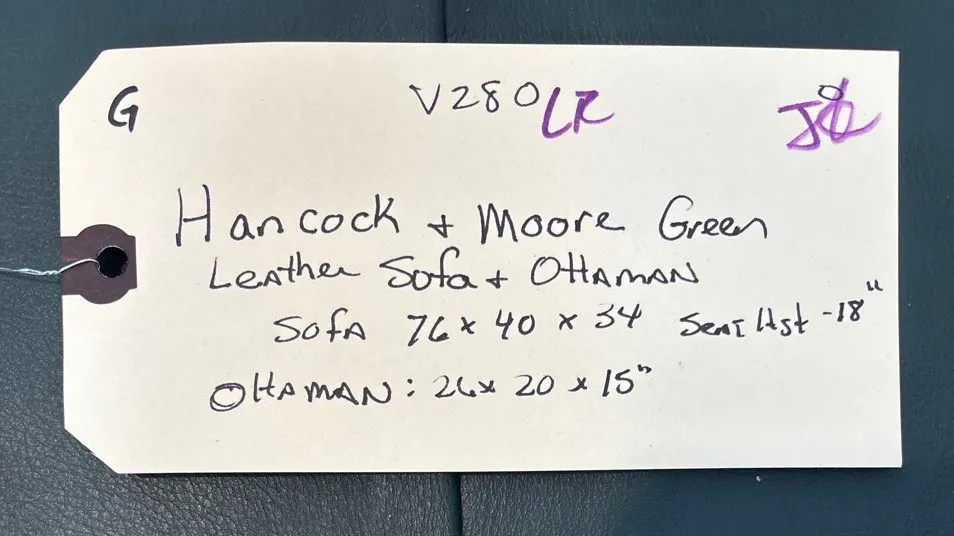 G V280 LR
Hancock + Moore Green
Leather Sofa + Ottaman
Sofa 76 x 40 x 34 Seat Hgt - 18"
Ottaman: 26 x 20 x 15"